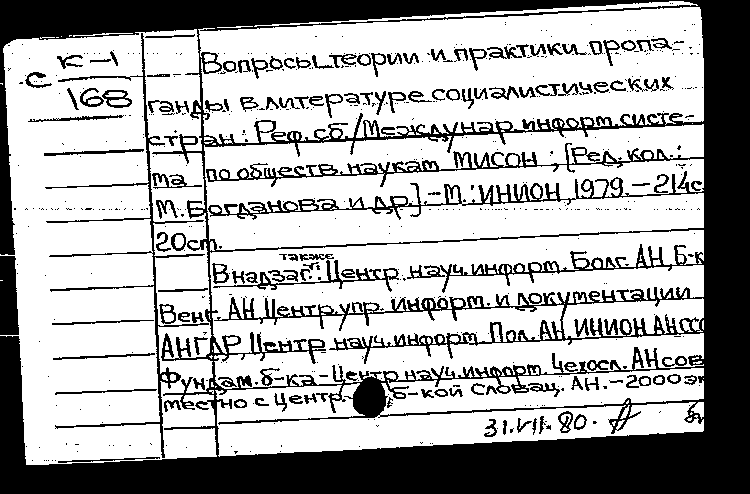 с К-1
168
Вопросы теории и практики пропа-
ганды в литературе социалистических
стран: Реф. сб./Междунар. информ. систе-
ма по обществ. наукам МИСОН; [Ред. кол.:
М. Богданова и др.].-М.: ИНИОН, 1979.-214с.
20см.
также
В надзаг.: Центр. науч. информ. Болг. АН, Б-к
Венг. АН, Центр. упр. информ. и документации
АН ГДР, Центр науч. информ. Пол. АН, ИНИОН АН ССС
Фундам. б-ка-Центр науч. информ. Чехосл. АН сов
местно с Центр. б-кой Словац. АН.-2000 эк
31.VII.80.